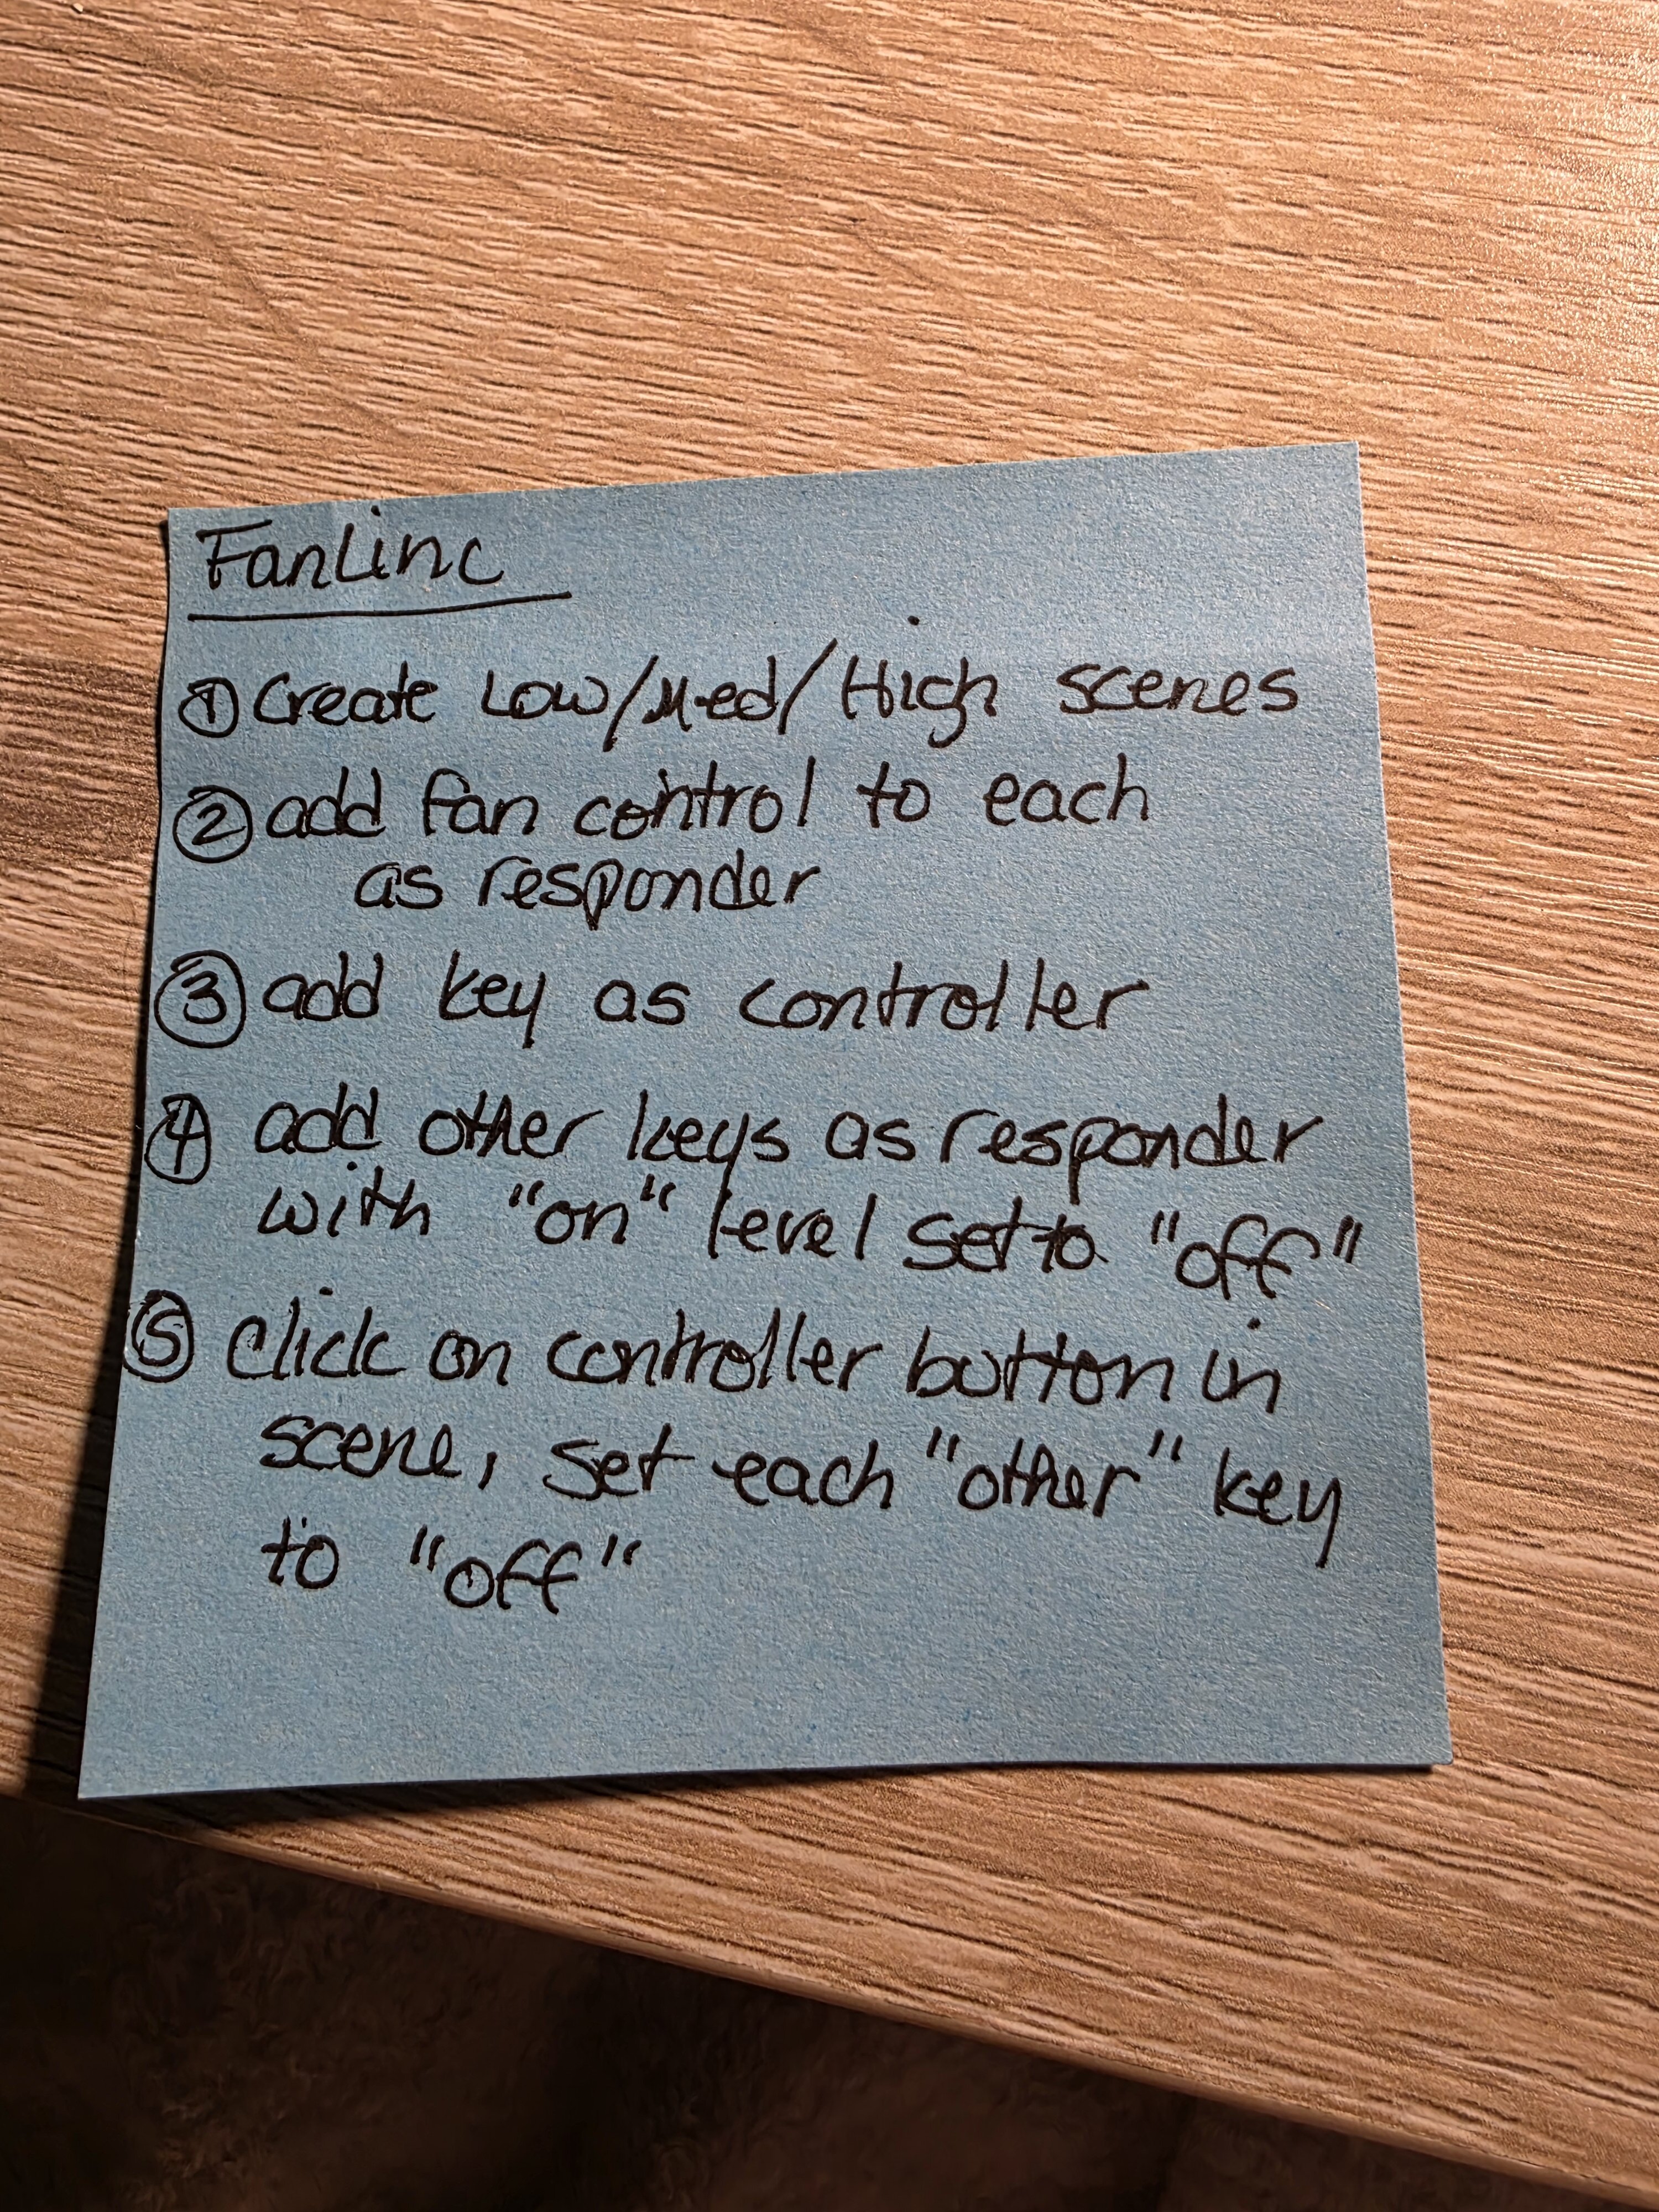 FanLinc
① Create Low/Med/High scenes
② add fan control to each
as responder
③ add key as controller
④ add other keys as responder
with "on" level set to "off"
⑤ Click on controller button in
scene, set each "other" key
to "off"